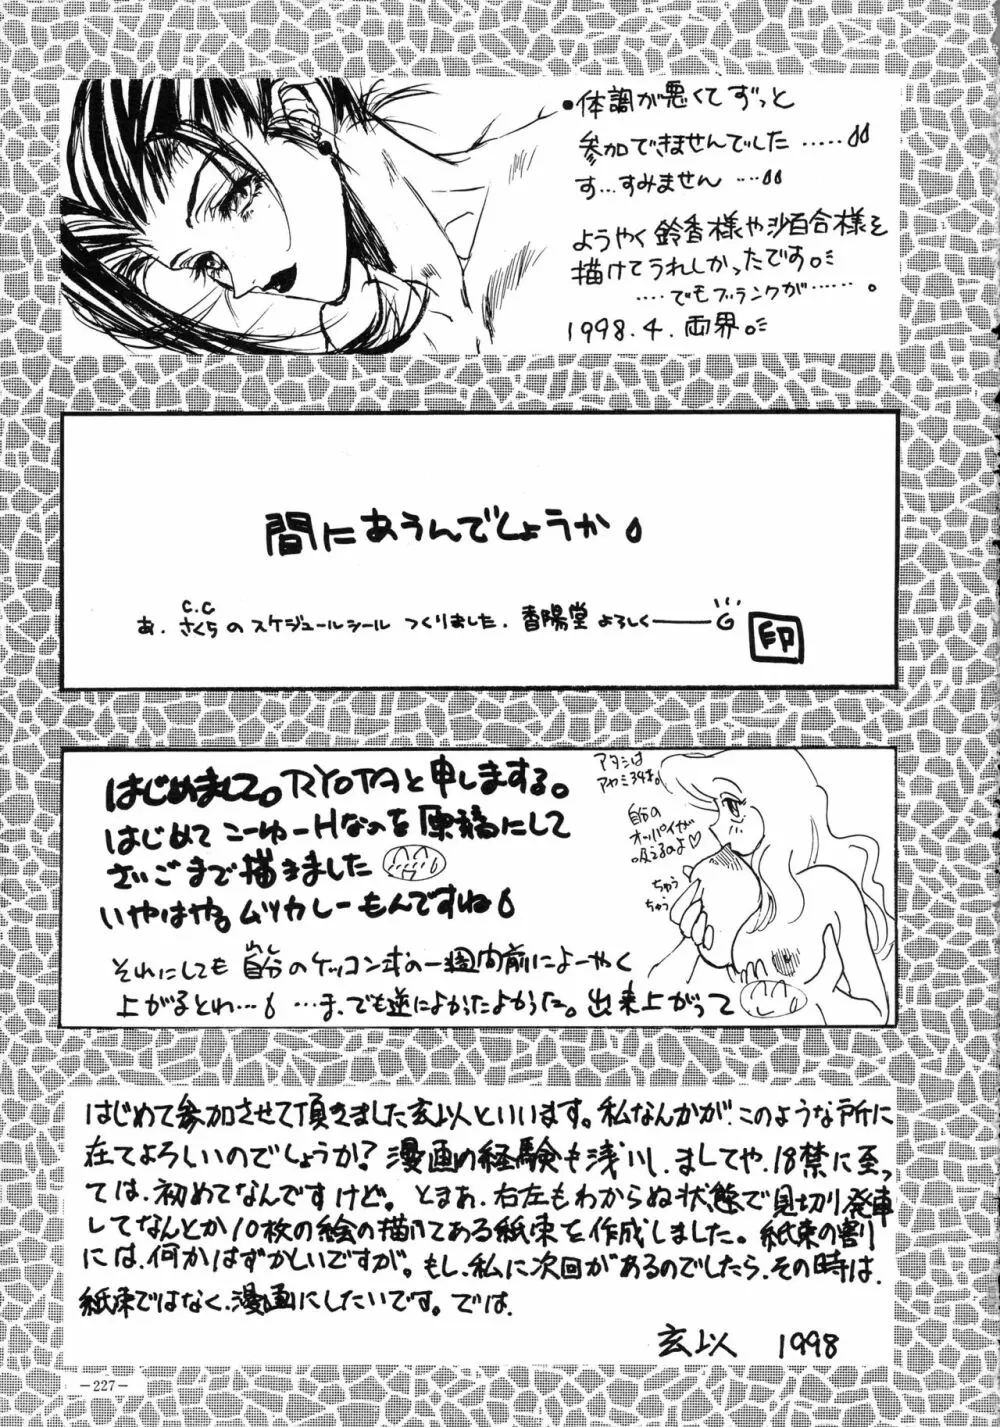 ●体調が悪くてずっと
参加できませんでした.....
す...すみません...
ようやく鈴香様や沙百合様を
描けてうれしかったです。
....でもブランクが......。
1998.4.両界。
間にあうんでしょうか
C.C
あ.さくらのスケジュールシールつくりました.香陽堂よろしくーG
印
はじめまして。RYOTAと申しまする。
はじめてこーゆーHなのを原稿にして
さいごまで描きました
いやはや。ムツカシーもんですね
それにしても自分のケッコン式の一週間前によーやく
上がるとわ...
...ま、でも逆によかったよかった。出来上がって
アタシは
アヤミ34才。
自分の
オッパイが
吸えるのよ♡
ちゅう
ちゅう
はじめて参加させて頂きました玄以といいます。私なんかが、このような所に
在てよろしいのでしょうか?漫画の経験も浅いし、ましてや、18禁に至っ
ては、初めてなんですけど。とまあ、右左もわからぬ状態で見切り発車
してなんとか10枚の絵の描いてある紙束を作成しました。紙束の割り
には、何かはずかしいですが。もし、私に次回があるのでしたら、その時は、
紙束ではなく、漫画にしたいです。では、
玄以 1998
-227-